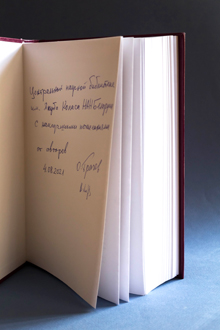 Центральной научной библиотеке
им. Якуба Коласа НАН Беларуси
с наилучшими пожеланиями
от авторов
4.08.2021